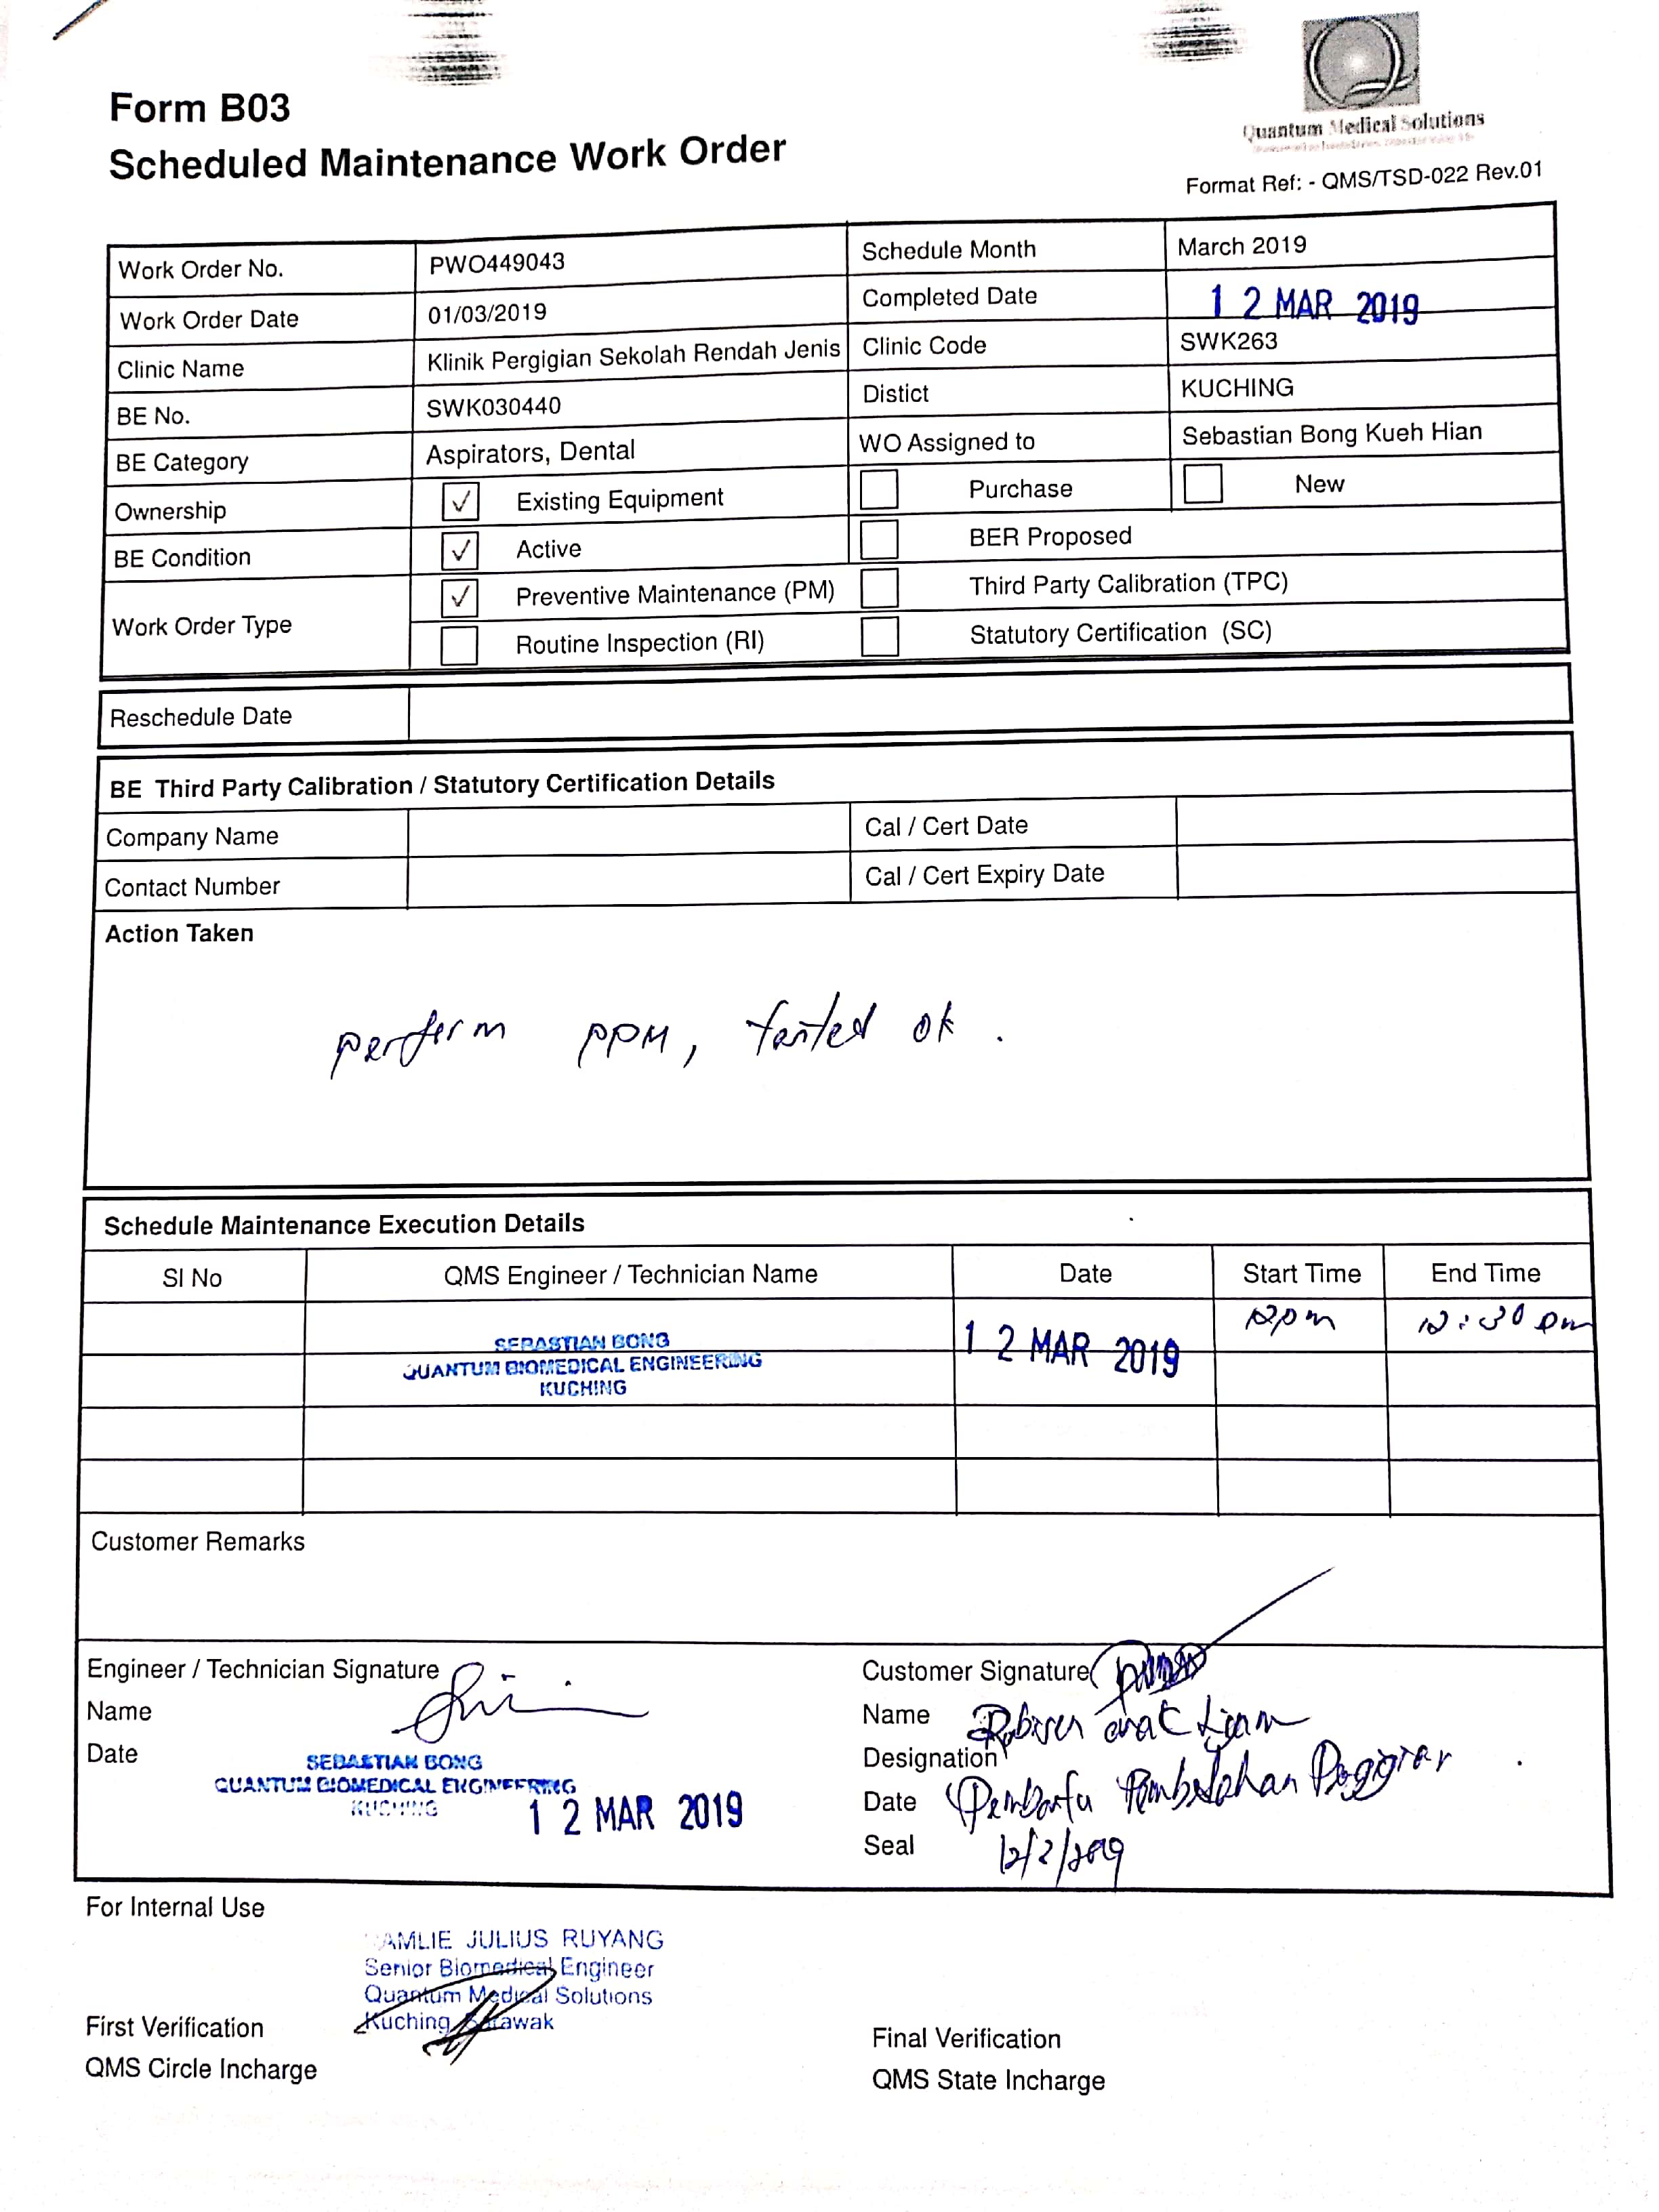 Quantum Medical Solutions
Form B03
Scheduled Maintenance Work Order
Format Ref: - QMS/TSD-022 Rev.01
Work Order No. PWO449043 Schedule Month March 2019
Work Order Date 01/03/2019 Completed Date 12 MAR 2019
Clinic Name Klinik Pergigian Sekolah Rendah Jenis Clinic Code SWK263
BE No. SWK030440 Distict KUCHING
BE Category Aspirators, Dental WO Assigned to Sebastian Bong Kueh Hian
Ownership ✓ Existing Equipment Purchase New
BE Condition ✓ Active BER Proposed
Work Order Type
✓ Preventive Maintenance (PM) Third Party Calibration (TPC)
Routine Inspection (RI) Statutory Certification (SC)
Reschedule Date
BE Third Party Calibration / Statutory Certification Details
Company Name Cal / Cert Date
Contact Number Cal / Cert Expiry Date
Action Taken
perform PPM, tested ok.
Schedule Maintenance Execution Details
SI No QMS Engineer / Technician Name Date Start Time End Time
SEBASTIAN BONG 12 MAR 2019 12pm 12:30 pm
QUANTUM BIOMEDICAL ENGINEERING
KUCHING
Customer Remarks
Engineer / Technician Signature
Name
Date
SEBASTIAN BONG
QUANTUM BIOMEDICAL ENGINEERING
KUCHING
12 MAR 2019
Customer Signature
Name anak
Designation
Date Pembantu Pembedahan
Seal 12/2/2019
For Internal Use
JULIUS RUYANG
Senior Biomedical Engineer
Quantum Medical Solutions
Kuching Sarawak
First Verification
QMS Circle Incharge
Final Verification
QMS State Incharge